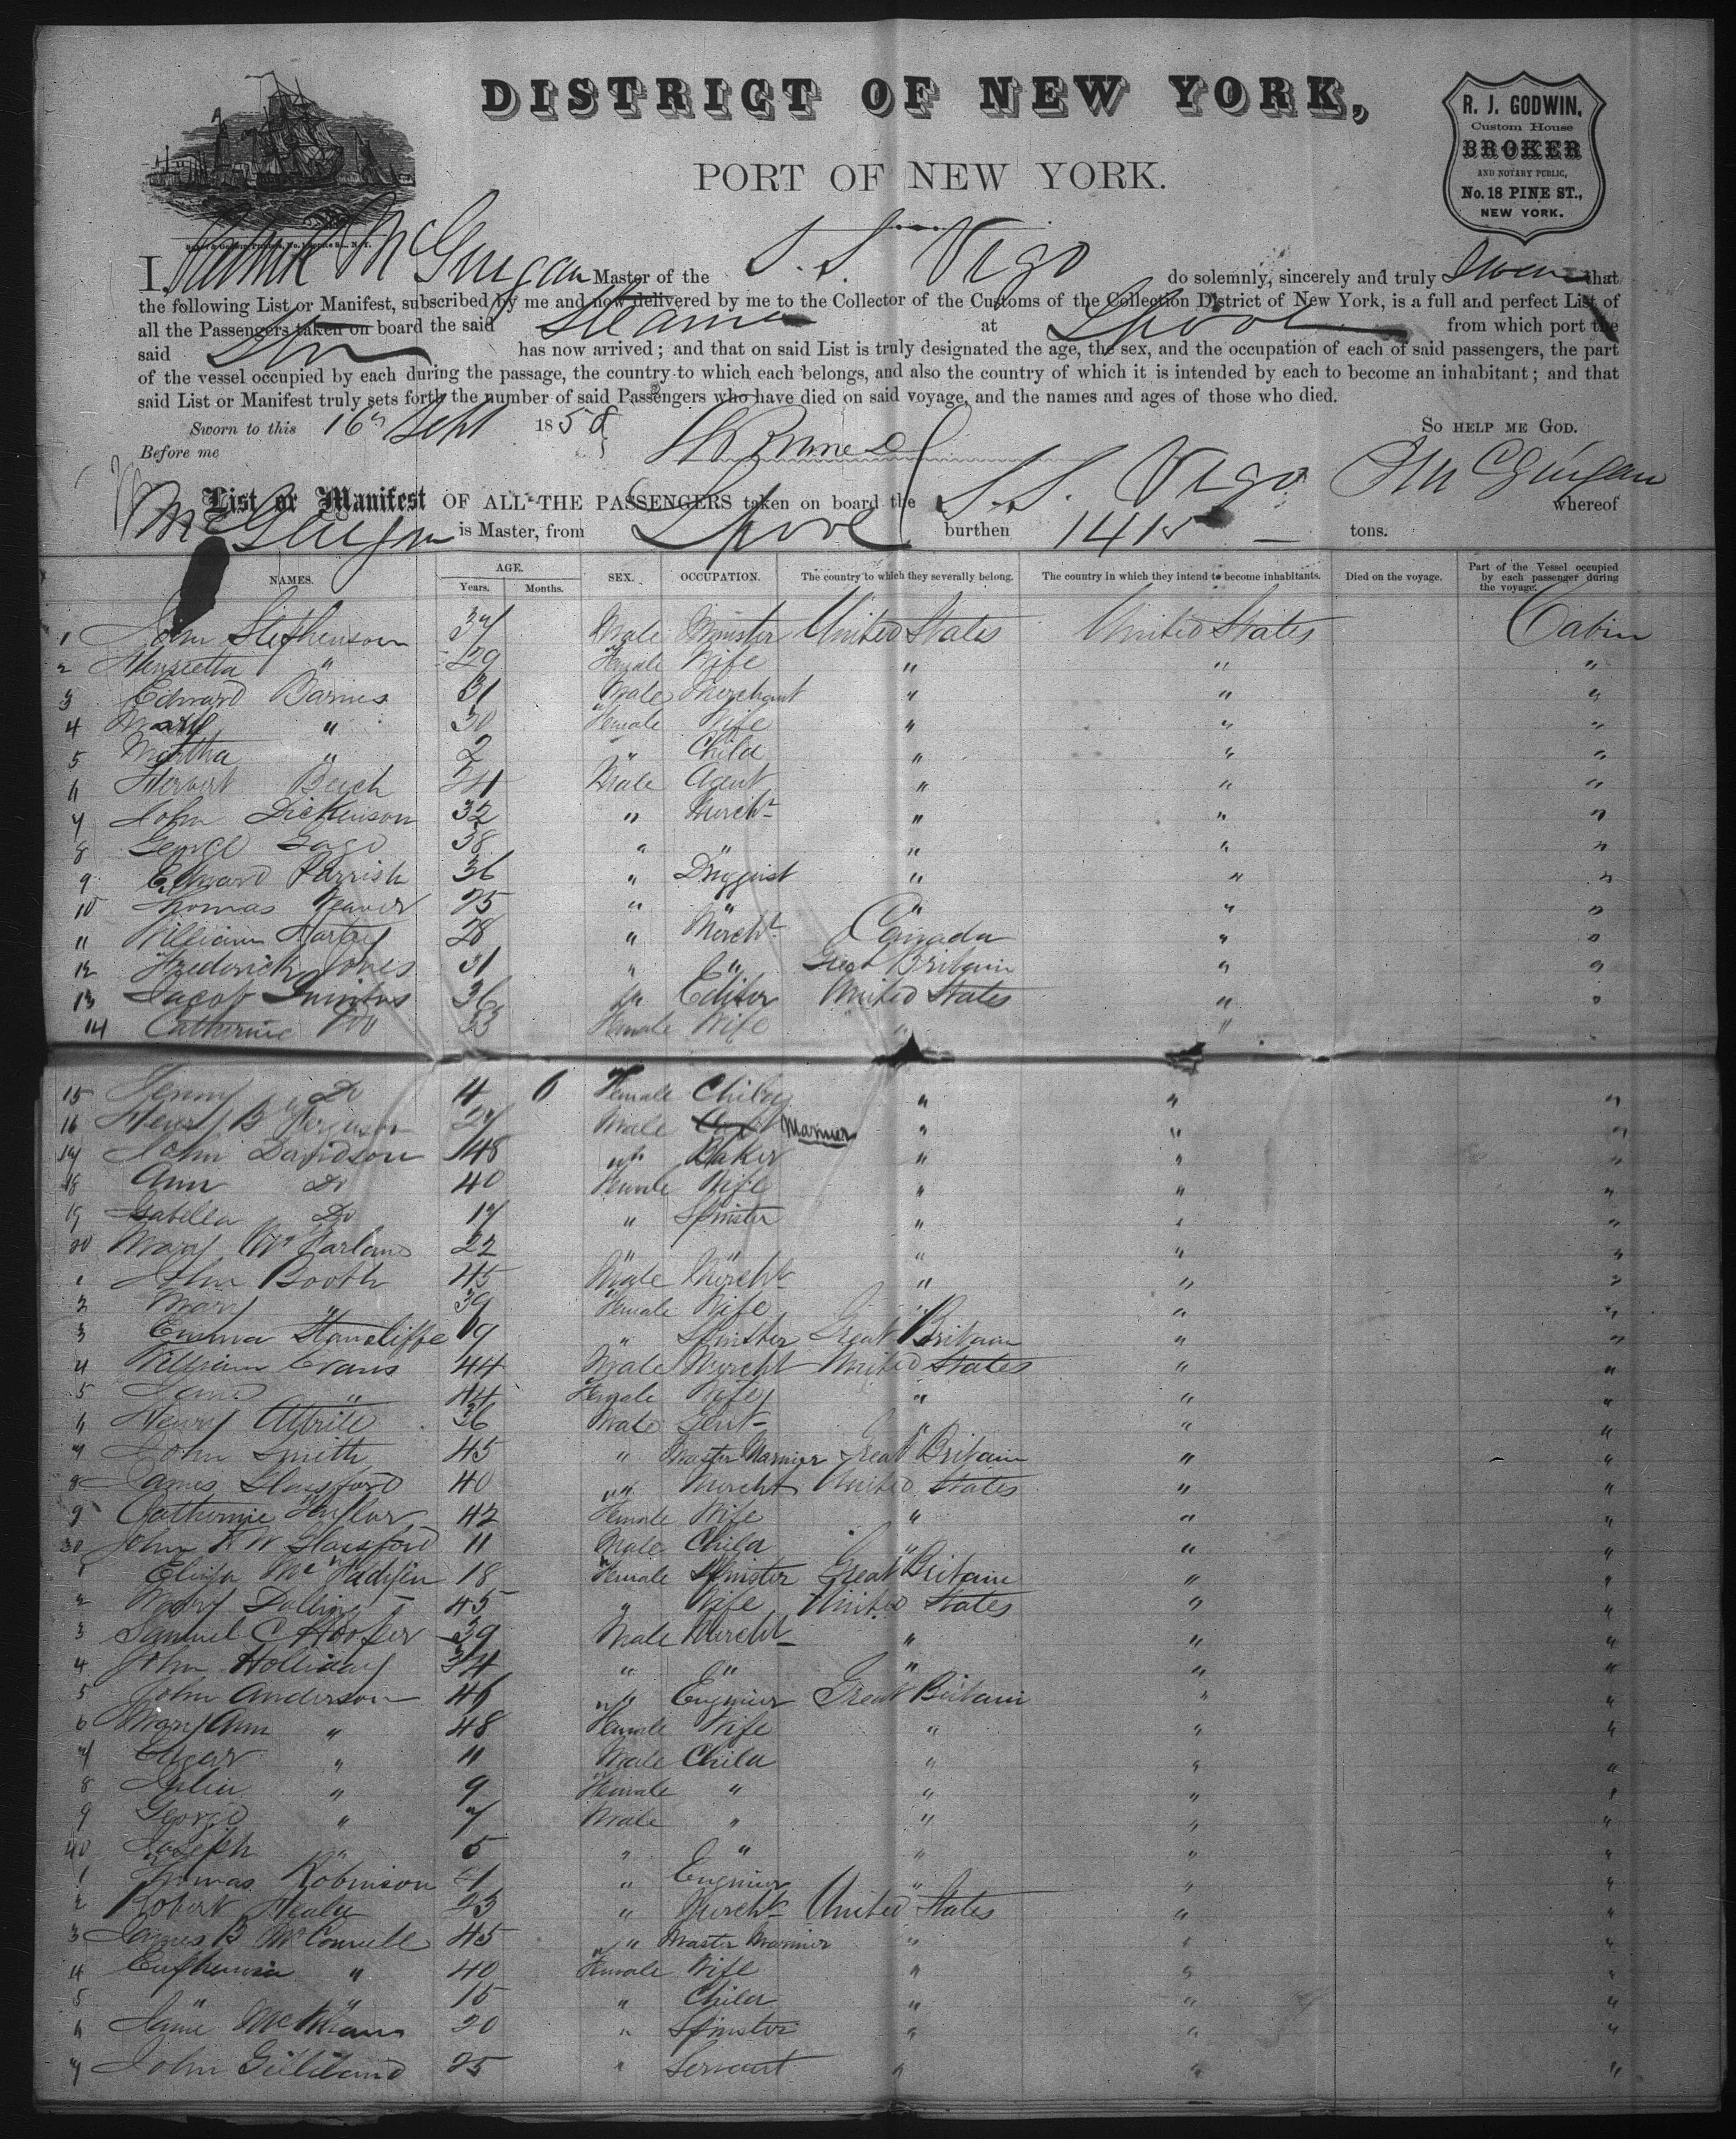 DISTRICT OF NEW YORK,
PORT OF NEW YORK.
R. J. GODWIN,
Custom House
BROKER
AND NOTARY PUBLIC,
No. 18 PINE ST.,
NEW YORK.
I, McGuigan Master of the S. S. Vigo do solemnly, sincerely and truly Swear that
the following List or Manifest, subscribed by me and now delivered by me to the Collector of the Customs of the Collection District of New York, is a full and perfect List of
all the Passengers taken on board the said Steamer at Lpool from which port the
said Str has now arrived; and that on said List is truly designated the age, the sex, and the occupation of each of said passengers, the part
of the vessel occupied by each during the passage, the country to which each belongs, and also the country of which it is intended by each to become an inhabitant; and that
said List or Manifest truly sets forth the number of said Passengers who have died on said voyage, and the names and ages of those who died.
Sworn to this 16th Sept 1858 So help me God.
Before me
McGuigan
List or Manifest OF ALL THE PASSENGERS taken on board the S. S. Vigo whereof
McGuigan is Master, from Lpool burthen 1415 tons.
NAMES. AGE. Years. Months. SEX. OCCUPATION. The country to which they severally belong. The country in which they intend to become inhabitants. Died on the voyage. Part of the Vessel occupied by each passenger during the voyage.
1 John Stephenson 37 Male Minister United States United States Cabin
2 Henrietta " 29 Female Wife " " "
3 Edward Barnes 31 Male Merchant " " "
4 Mary " 30 Female Wife " " "
5 Martha " 2 " Child " " "
6 Herbert Beech Male Agent " " "
7 John Dickenson 32 " Mercht " " "
8 George 38 " " " " "
9 Edward Parrish 36 " Druggist " " "
10 Thomas Weaver 25 " " " " "
11 William 28 " Mercht Canada " "
12 Frederick Jones 31 " " Great Britain " "
13 Jacob 36 " Editor United States " "
14 Catherine Do 33 Female Wife " " "
15 Jenny Do 4 6 Female Child " " "
16 Henry B Ferguson 27 Male Mariner " " "
17 John Davidson 48 " Baker " " "
18 Ann Do 40 Female Wife " " "
19 Isabella Do 17 " Spinster " " "
20 Mary McFarland 22 " " " " "
1 John Booth 45 Male Mercht " " "
2 Mary " 39 Female Wife " " "
3 Emma Stancliffe 19 " Spinster Great Britain " "
4 William Evans 44 Male Mercht United States " "
5 Jane " 44 Female Wife " " "
6 Henry Attrill 36 Male Gent " " "
7 John Smith 45 " Master Mariner Great Britain " "
8 James Glassford 40 " Mercht United States " "
9 Catherine Taylor 42 Female Wife " " "
30 John K W Glassford 11 Male Child " " "
1 Eliza McFadyen 18 Female Spinster Great Britain " "
2 Mary 45 " Wife United States " "
3 Samuel C Hooper 39 Male Mercht " " "
4 John Holliday 34 " " " " "
5 John Anderson 46 " Engineer Great Britain " "
6 Mary Ann " 48 Female Wife " " "
7 Edgar " 11 Male Child " " "
8 Julia " 9 Female " " " "
9 George " 7 Male " " " "
40 Joseph " 5 " " " " "
1 Thomas Robinson " Engineer " " "
2 Robert Healy 23 " Mercht United States " "
3 James B McConnell 45 " Master Mariner " " "
4 Euphemia " 40 Female Wife " " "
5 " " 15 " Child " " "
6 Jane 20 " Spinster " " "
7 John Gilliland 25 " Servant " " "